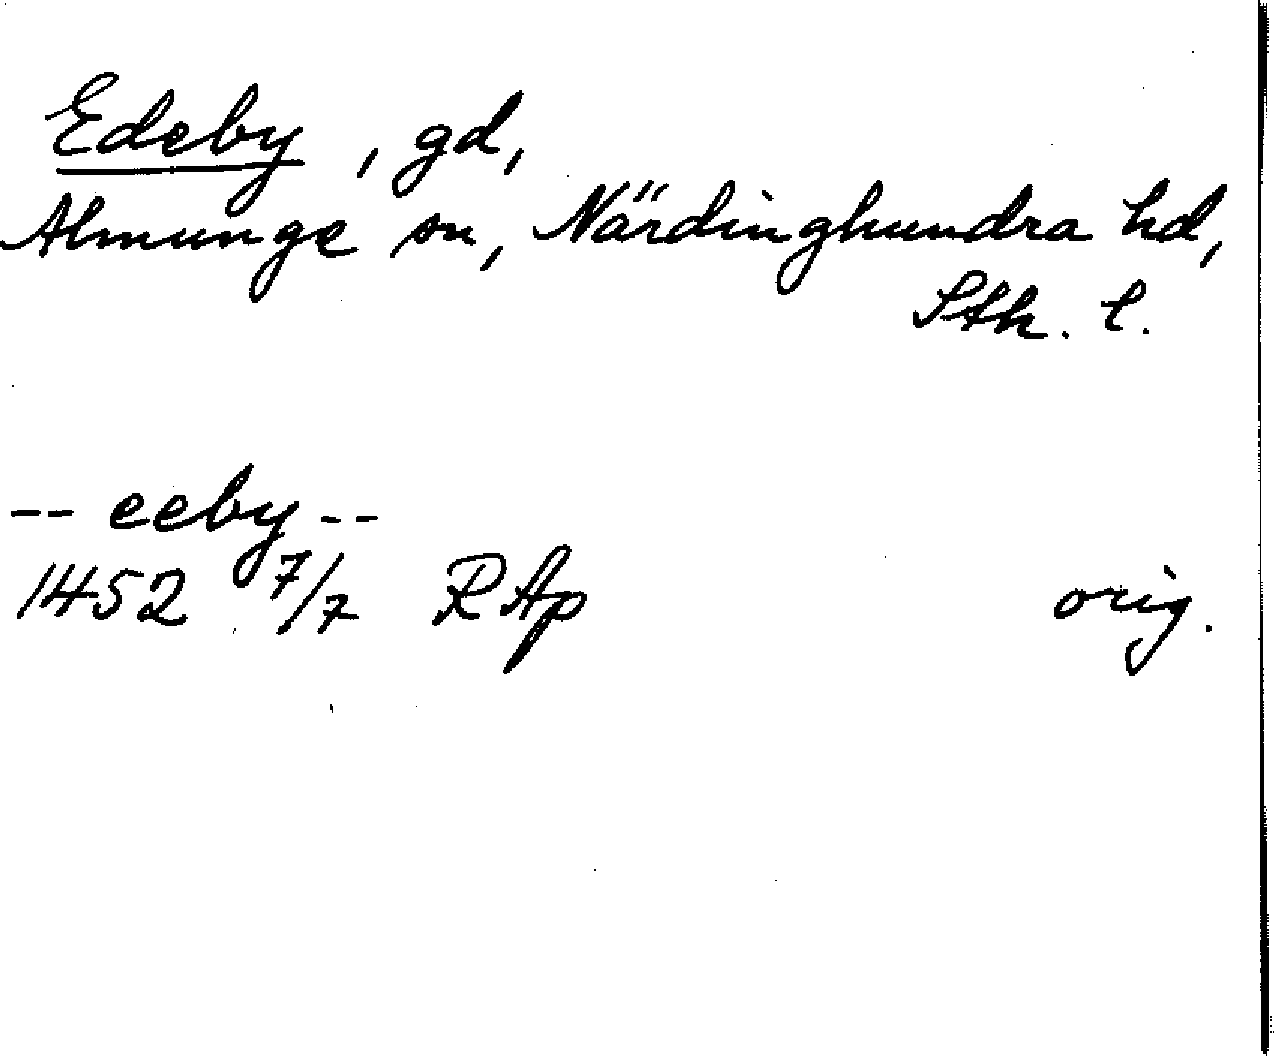 Edeby, gd,
Almunge sn, Närdinghundra hd,
Sth. l.
-- eeby --
1452 7/7 RAp orig.